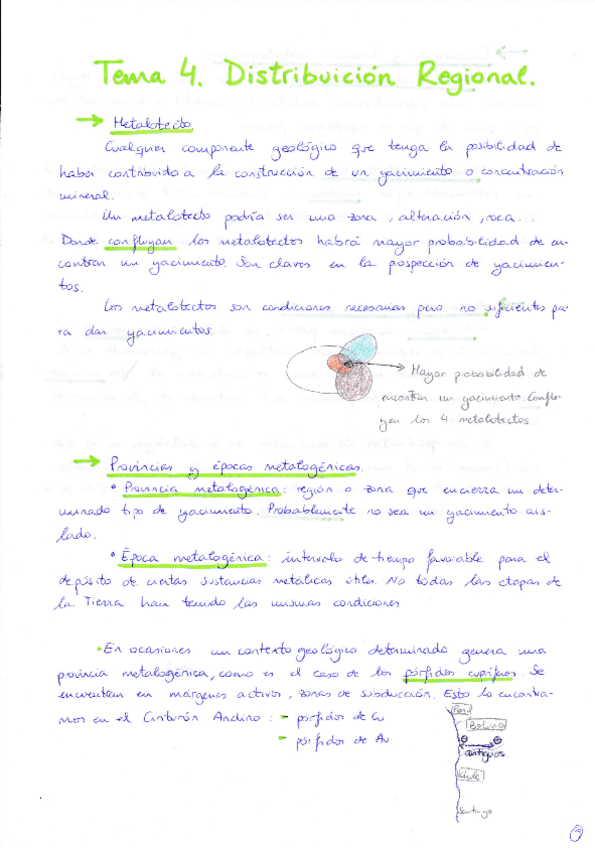 Tema 4. Distribuición Regional.
→ Metalotecto
Cualquier componente geológico que tenga la posibilidad de
haber contribuido a la construcción de un yacimiento o concentración
mineral.
Un metalotecto podría ser una zona, alteración, roca...
Donde confluyan los metalotectos habrá mayor probabilidad de en-
contrar un yacimiento. Son claves en la prospección de yacimien-
tos.
Los metalotectos son condiciones necesarias pero no suficientes pa-
ra dar yacimientos.
Mayor probabilidad de
encontrar un yacimiento. Conflu-
yen los 4 metalotectos
→ Provincias y épocas metalogénicas.
• Provincia metalogénica: región o zona que encierra un deter-
minado tipo de yacimiento. Probablemente no sea un yacimiento ais-
lado.
• Época metalogénica: intervalo de tiempo favorable para el
depósito de ciertas sustancias metálicas útiles. No todas las etapas de
la Tierra han tenido las mismas condiciones
• En ocasiones un contexto geológico determinado genera una
provincia metalogénica, como es el caso de los pórfidos cupríferos. Se
encuentran en márgenes activos, zonas de subducción. Esto lo encontra-
mos en el Cinturón Andino: - pórfidos de Cu
- pórfidos de Au
Perú
Bolivia
antiguos
Chile
Santiago